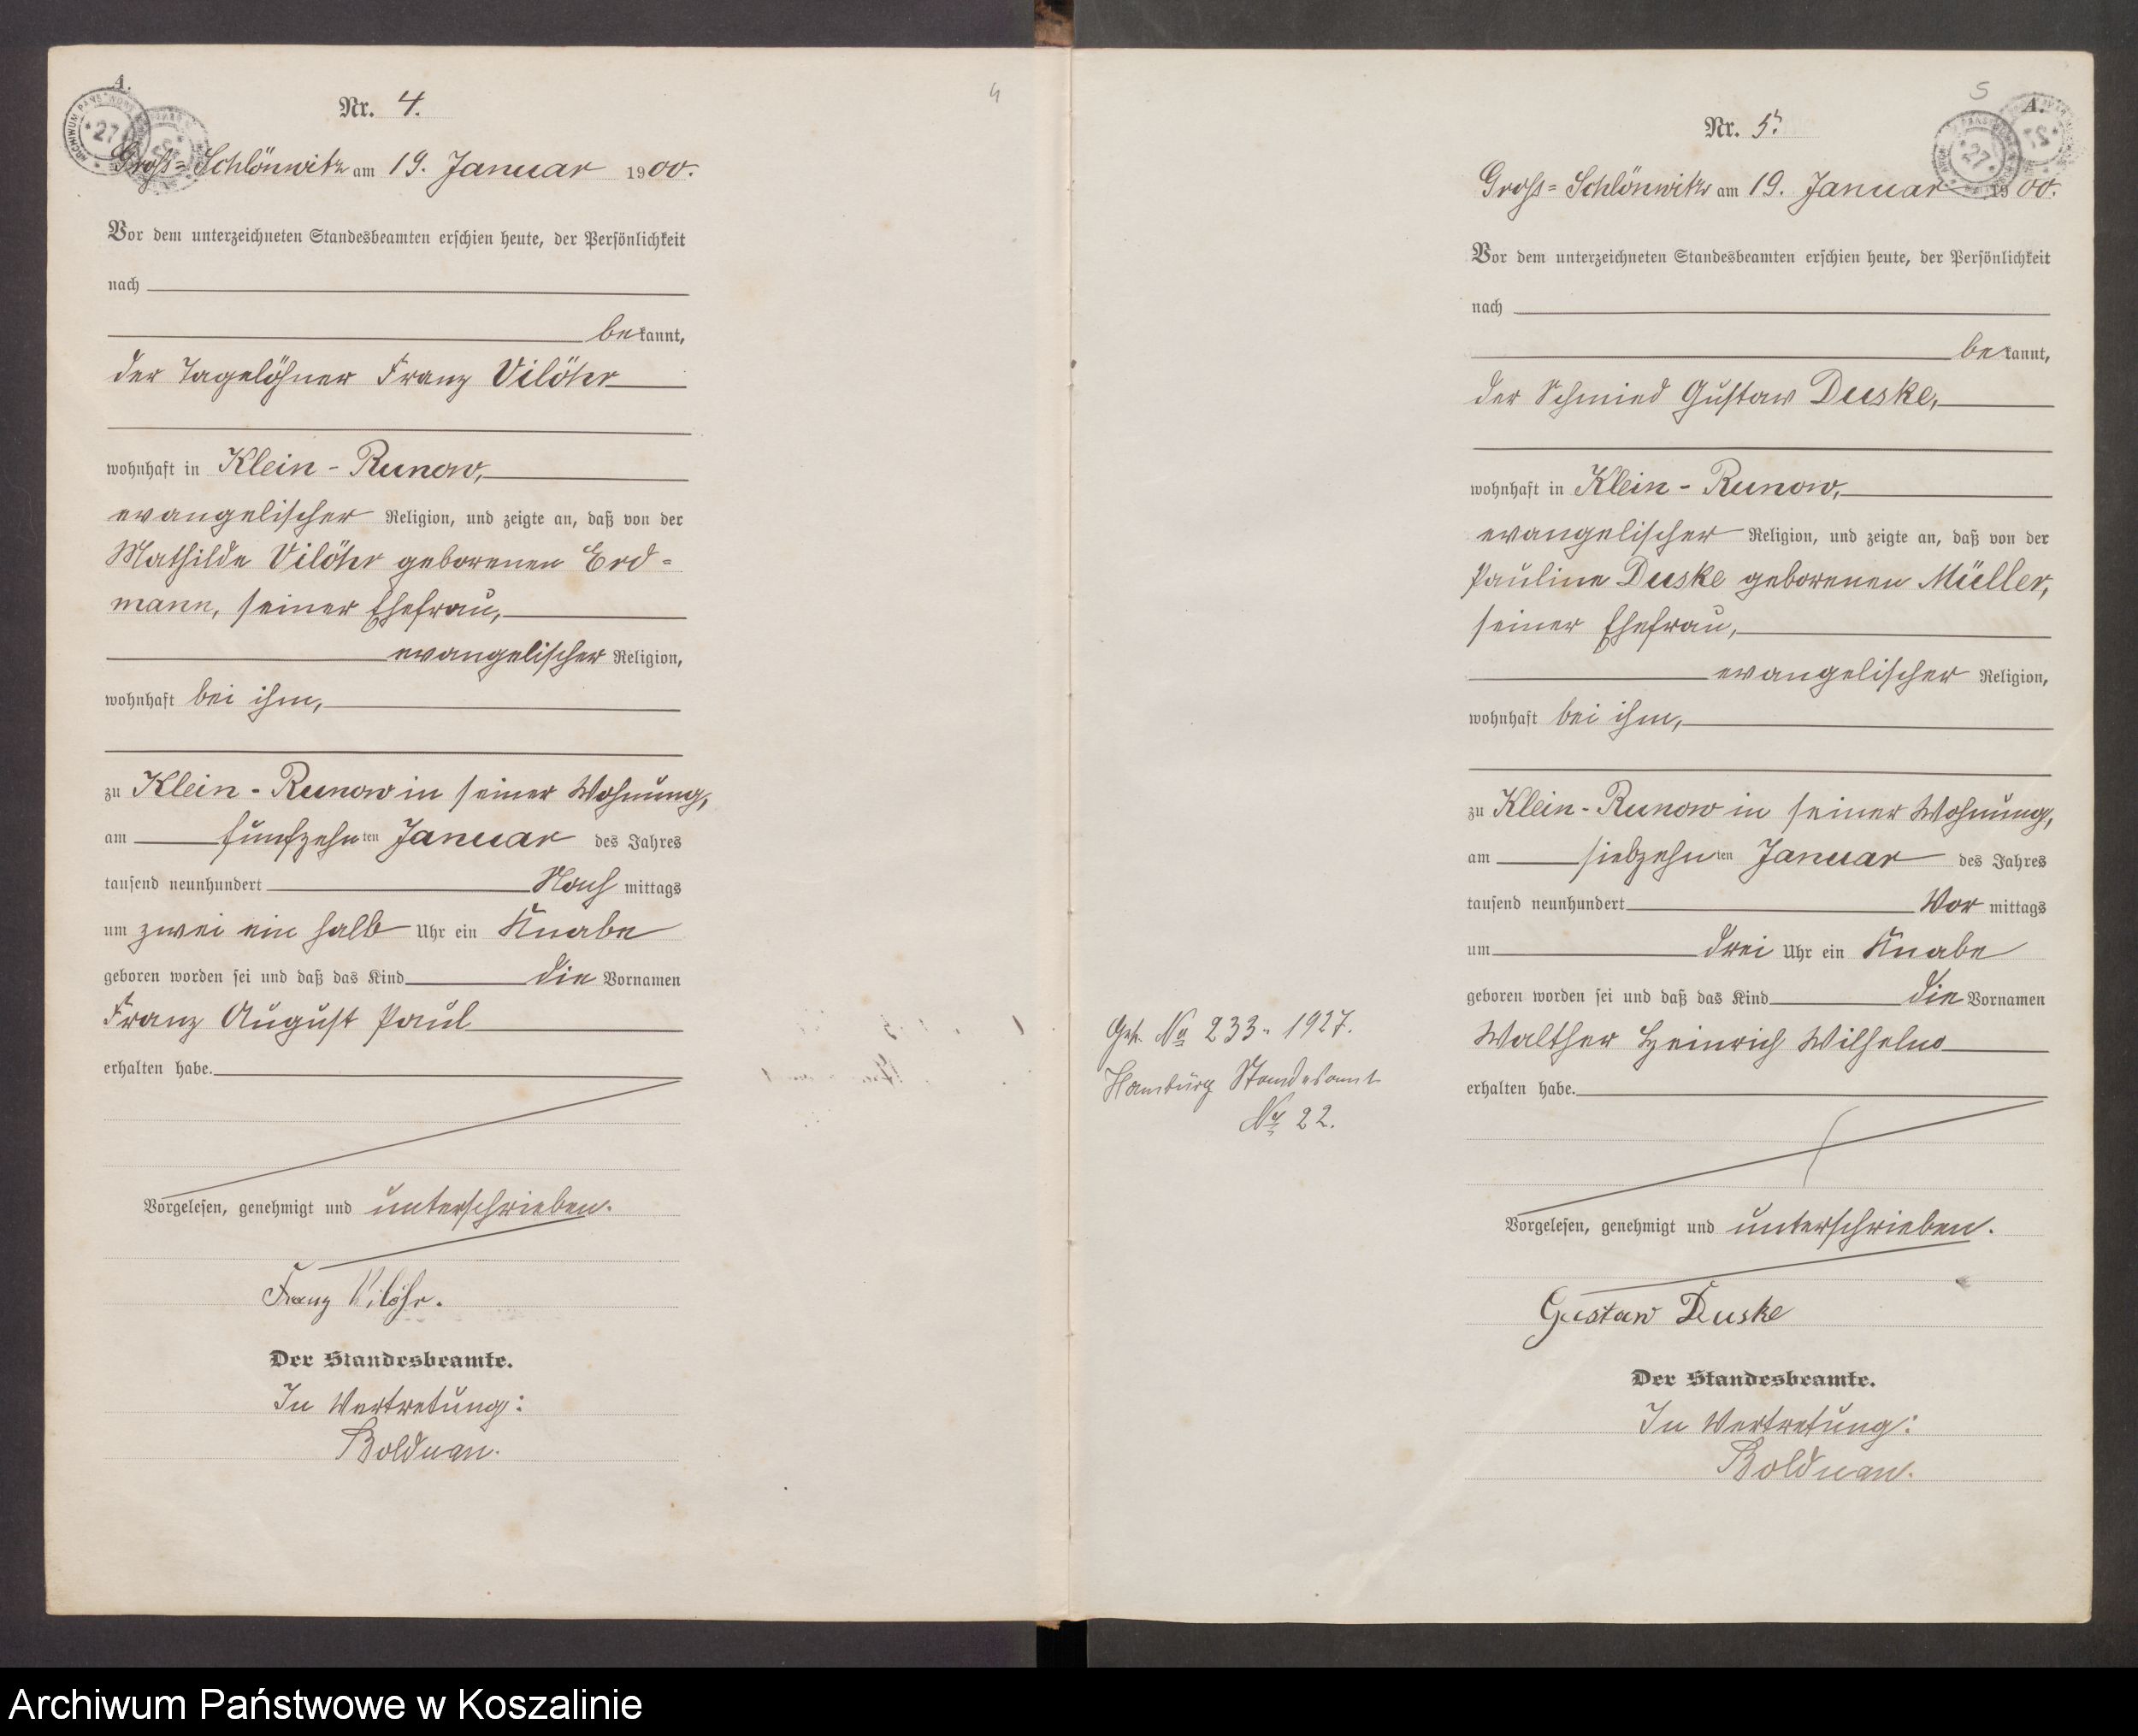 A.
Nr. 4.
Groß=Schlönwitz am 19. Januar 1900.
Vor dem unterzeichneten Standesbeamten erschien heute, der Persönlichkeit
nach
bekannt,
der Tagelöhner Franz Vilöhr
wohnhaft in Klein-Runow,
evangelischer Religion, und zeigte an, daß von der
Mathilde Vilöhr geborenen Erd=
mann, seiner Ehefrau,
evangelischer Religion,
wohnhaft bei ihm,
zu Klein-Runow in seiner Wohnung,
am fünfzehnten Januar des Jahres
tausend neunhundert Nachmittags
um zwei ein halb Uhr ein Knabe
geboren worden sei und daß das Kind die Vornamen
Franz August Paul
erhalten habe.
Vorgelesen, genehmigt und unterschrieben.
Franz Vilöhr.
Der Standesbeamte.
In Vertretung:
Bolduan.
4
5
A.
Nr. 5.
Gross=Schlönwitz am 19. Januar 1900.
Vor dem unterzeichneten Standesbeamten erschien heute, der Persönlichkeit
nach
bekannt,
der Schmied Gustav Duske,
wohnhaft in Klein-Runow,
evangelischer Religion, und zeigte an, daß von der
Pauline Duske geborenen Müller,
seiner Ehefrau,
evangelischer Religion,
wohnhaft bei ihm,
zu Klein-Runow in seiner Wohnung,
am siebzehnten Januar des Jahres
tausend neunhundert Vormittags
um drei Uhr ein Knabe
geboren worden sei und daß das Kind die Vornamen
Walther Heinrich Wilhelm
erhalten habe.
Vorgelesen, genehmigt und unterschrieben.
Gustav Duske
Der Standesbeamte.
In Vertretung:
Bolduan.
No 233. 1927.
Hamburg Standesamt
No 22.
Archiwum Państwowe w Koszalinie